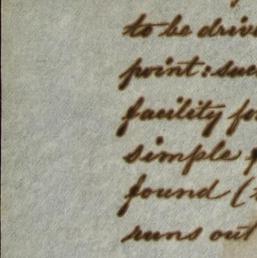 to be driv
point: suc
facility fo
simple
found (
runs out